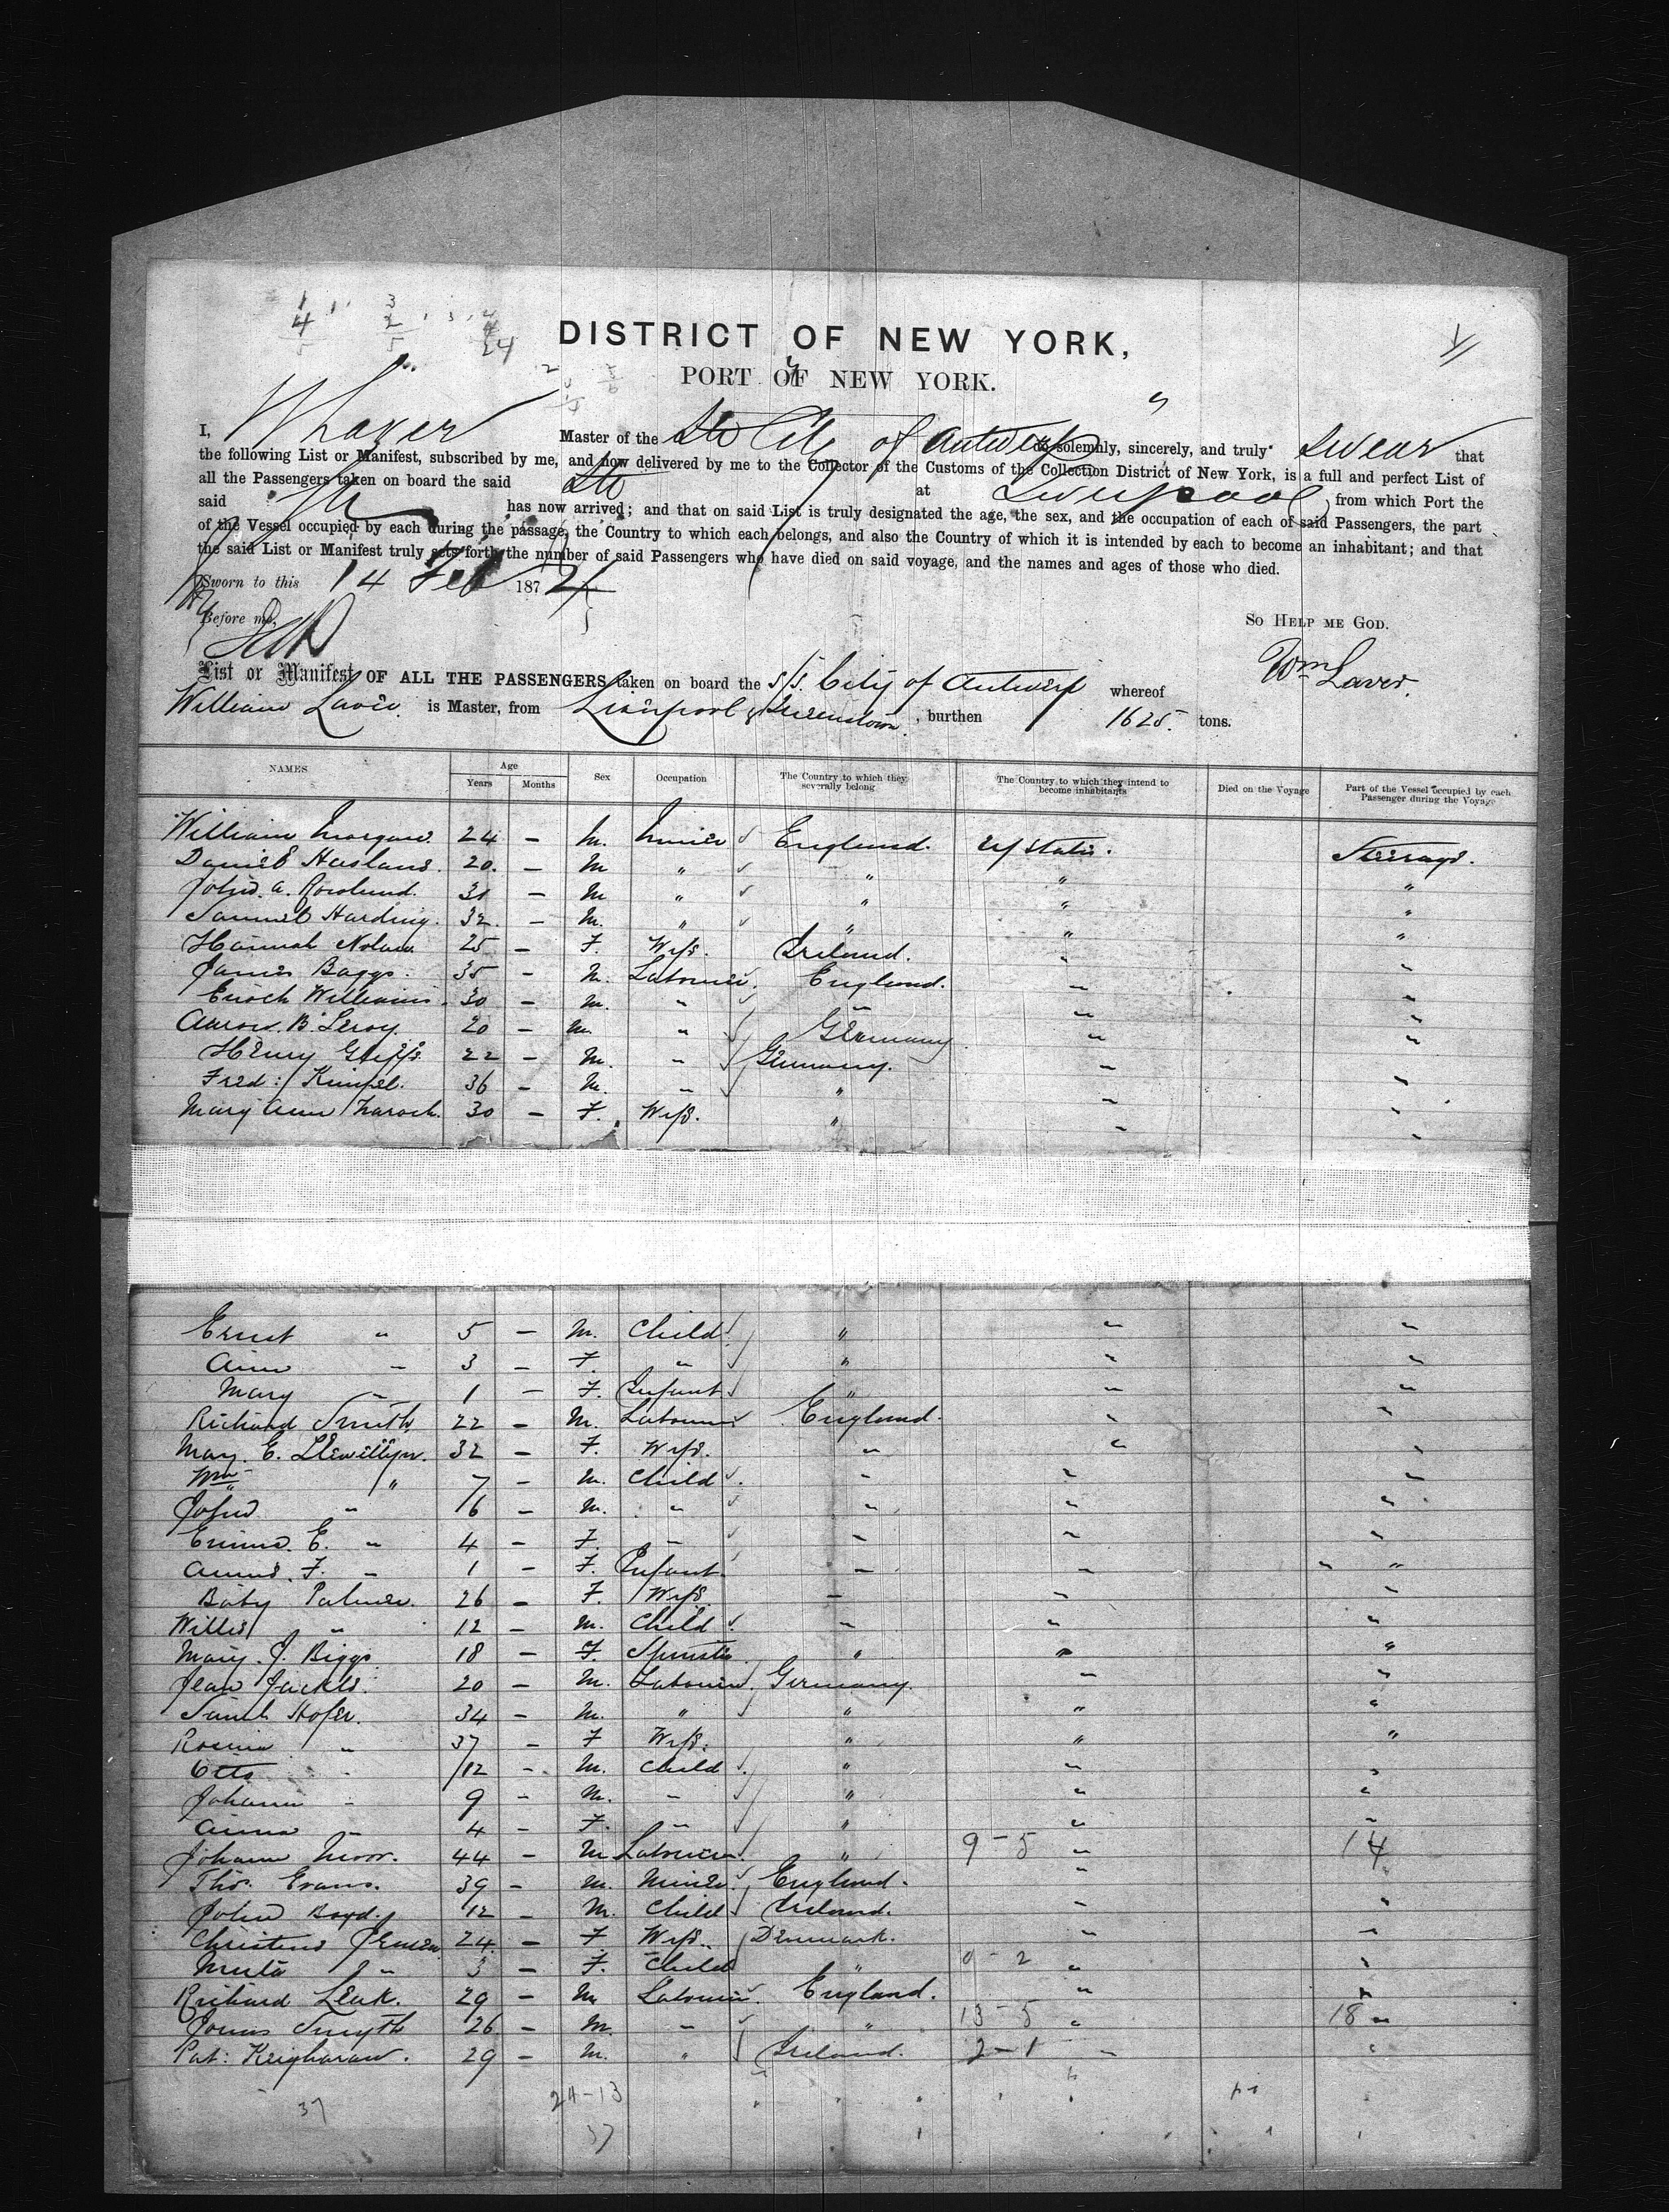 DISTRICT OF NEW YORK,
PORT OF NEW YORK.
I, W Laver Master of the Str City of Antwerp do solemnly, sincerely, and truly swear that
the following List or Manifest, subscribed by me, and now delivered by me to the Collector of the Customs of the Collection District of New York, is a full and perfect List of
all the Passengers taken on board the said Str at Liverpool from which Port the
said Str has now arrived; and that on said List is truly designated the age, the sex, and the occupation of each of said Passengers, the part
of the Vessel occupied by each during the passage, the Country to which each belongs, and also the Country of which it is intended by each to become an inhabitant; and that
the said List or Manifest truly sets forth the number of said Passengers who have died on said voyage, and the names and ages of those who died.
Sworn to this 14 Feb 1874
Before me, So Help me God.
Wm Laver.
List or Manifest OF ALL THE PASSENGERS taken on board the s/s. City of Antwerp whereof
William Laver is Master, from Liverpool & Queenstown, burthen 1625 tons.
NAMES Age Years Months Sex Occupation The Country to which they severally belong The Country to which they intend to become inhabitants Died on the Voyage Part of the Vessel occupied by each Passenger during the Voyage
William Morgan. 24 – M. Miner England. U States. Steerage.
Daniel 20. – M " " " "
John. A. Rowland. 31 – M " " " "
Samuel Harding. 32. – M. " " " "
Hannah Nolan 25 – F. Wife. Ireland. " "
James Baggs. 35 – M. Labourer. England. " "
Enoch Williams. 30 – M. " " " "
Aaron. B. Leroy 20 – M. " Germany " "
Henry 22 – M. " Germany. " "
Fred: Kimpel. 36 – M. " " " "
Mary Ann 30 – F. Wife. " " "
Ernst " 5 – M. Child " " "
Ann " 3 – F. " " " "
Mary " 1 – F. Infant " " "
Richard Smith. 22 – M. Labourer England. " "
Mary. E. Llewillyn. 32 – F. Wife. " " "
Wm " 7 – M. Child " " "
John " 6 – M. " " " "
Emma. E. " 4 – F. " " " "
Annie. F. " 1 – F. Infant. " " "
Palmer. 26 – F. Wife. " " "
Willie " 12 – M. Child " " "
Mary. J. Biggs 18 – F. Spinster. " " "
Jean 20 – M. Labourer Germany. " "
Hofer. 34 – M. " " " "
Rosina " 37 – F Wife. " " "
Otto " 12 – M. Child " " "
Johann " 9 – M. " " " "
Anna " 4 – F. " " " "
Johann Moor. 44 – M Labourer. " 9-5 " 14
Thos. Evans. 39 – M. Miner. England. " "
John Boyd. 12 – M. Child Ireland. " "
Christine Jensen 24. – F Wife. Denmark. " "
Meta " 3 – F. Child " 0-2 " "
Richard Leuk. 29 – M Labourer. England. " "
Smyth 26 – M. " " 13-5 " 18 "
Pat: 29 – M. " Ireland. 2-1 " "
37 24-13
37